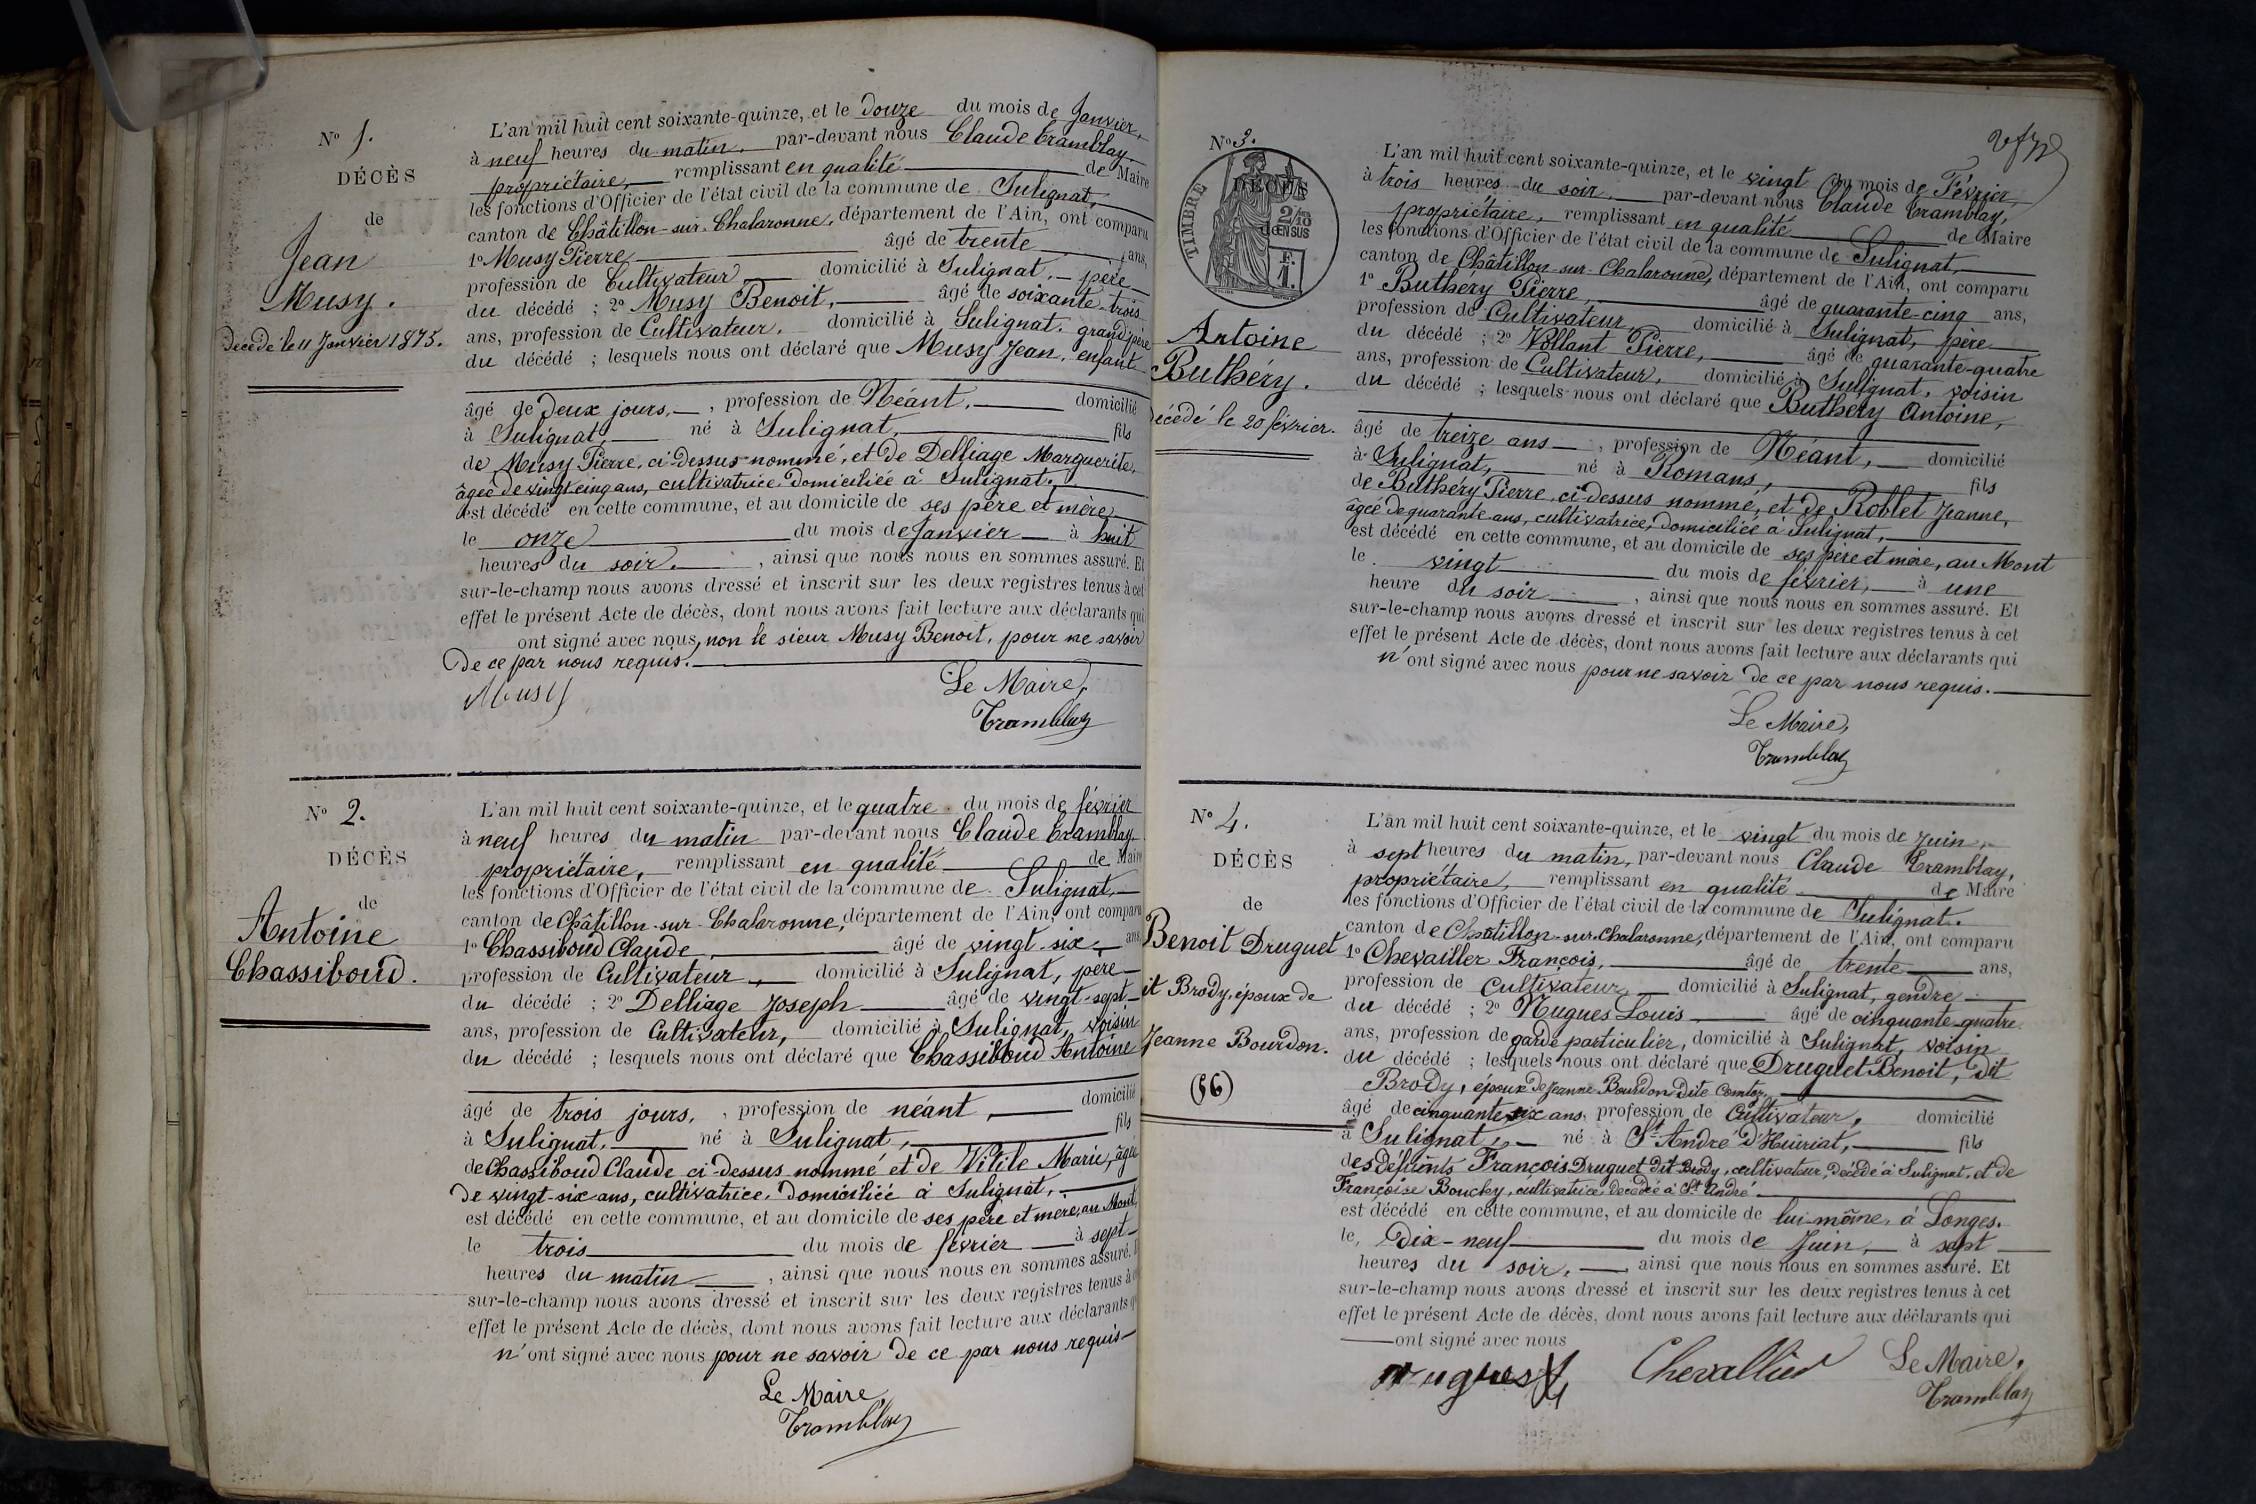 N° 1.
DÉCÈS
de
Jean
Musy.
Décédé le 11 Janvier 1875.
L'an mil huit cent soixante-quinze, et le douze du mois de Janvier,
à neuf heures du matin, par-devant nous Claude Tramblay,
propriétaire, remplissant en qualité de Maire
les fonctions d'Officier de l'état civil de la commune de Sulignat,
canton de Châtillon-sur-Chalaronne, département de l'Ain, ont comparu
1° Musy Pierre, âgé de trente ans,
profession de Cultivateur, domicilié à Sulignat, père
du décédé ; 2° Musy Benoit, âgé de soixante-trois
ans, profession de Cultivateur, domicilié à Sulignat, grand père
du décédé ; lesquels nous ont déclaré que Musy Jean, enfant
âgé de deux jours, , profession de Néant, domicilié
à Sulignat, né à Sulignat, fils
de Musy Pierre, ci-dessus nommé, et de Delliage Marguerite,
âgée de vingt cinq ans, cultivatrice domiciliée à Sulignat,
est décédé en cette commune, et au domicile de ses père et mère
le onze du mois de Janvier à huit
heures du soir, , ainsi que nous nous en sommes assuré. Et
sur-le-champ nous avons dressé et inscrit sur les deux registres tenus à cet
effet le présent Acte de décès, dont nous avons fait lecture aux déclarants qui
ont signé avec nous, non le sieur Musy Benoit, pour ne savoir
de ce par nous requis.
Musy
Le Maire,
Tramblay
N° 2.
DÉCÈS
de
Antoine
Chassiboud.
L'an mil huit cent soixante-quinze, et le quatre du mois de février
à neuf heures du matin par-devant nous Claude Tramblay,
propriétaire, remplissant en qualité de Maire
les fonctions d'Officier de l'état civil de la commune de Sulignat,
canton de Châtillon-sur-Chalaronne, département de l'Ain, ont comparu
1° Chassiboud Claude, âgé de vingt-six, ans
profession de Cultivateur, domicilié à Sulignat, père
du décédé ; 2° Delliage Joseph âgé de vingt-sept
ans, profession de Cultivateur, domicilié à Sulignat, voisin
du décédé ; lesquels nous ont déclaré que Chassiboud Antoine
âgé de trois jours, , profession de néant, domicilié
à Sulignat, né à Sulignat, fils
de Chassiboud Claude ci-dessus nommé et de Vitile Marie, âgée
de vingt-six ans, cultivatrice, domiciliée à Sulignat,
est décédé en cette commune, et au domicile de ses père et mère, au Mont,
le trois du mois de février à sept
heures du matin , ainsi que nous nous en sommes assuré. E
sur-le-champ nous avons dressé et inscrit sur les deux registres tenus à
effet le présent Acte de décès, dont nous avons fait lecture aux déclarants q
n'ont signé avec nous pour ne savoir de ce par nous requis
Le Maire,
Tramblay
N° 3.
TIMBRE
DÉCÈS
2/10
de EN SUS
F.
1.
Antoine
Buthéry.
écédé le 20 février.
L'an mil huit cent soixante-quinze, et le vingt du mois de Février,
à trois heures du soir, par-devant nous Claude Tramblay,
propriétaire, remplissant en qualité de Maire
les fonctions d'Officier de l'état civil de la commune de Sulignat,
canton de Châtillon-sur-Chalaronne, département de l'Ain, ont comparu
1° Buthéry Pierre, âgé de quarante-cinq ans,
profession de Cultivateur, domicilié à Sulignat, père
du décédé ; 2° Vollant Pierre, âgé de quarante-quatre
ans, profession de Cultivateur, domicilié à Sulignat, voisin
du décédé ; lesquels nous ont déclaré que Buthéry Antoine,
âgé de treize ans , profession de Néant, domicilié
à Sulignat, né à Romans, fils
de Buthéry Pierre, ci-dessus nommé, et de Roblet Jeanne,
âgée de quarante ans, cultivatrice, domiciliée à Sulignat,
est décédé en cette commune, et au domicile de ses père et mère, au Mont
le vingt du mois de février, à une
heure du soir , ainsi que nous nous en sommes assuré. Et
sur-le-champ nous avons dressé et inscrit sur les deux registres tenus à cet
effet le présent Acte de décès, dont nous avons fait lecture aux déclarants qui
n'ont signé avec nous pour ne savoir de ce par nous requis.
Le Maire,
Tramblay
N° 4.
DÉCÈS
de
Benoit Druguet
it Brody, époux de
Jeanne Bourdon.
(56)
L'an mil huit cent soixante-quinze, et le vingt du mois de Juin,
à sept heures du matin, par-devant nous Claude Tramblay,
propriétaire, remplissant en qualité de Maire
les fonctions d'Officier de l'état civil de la commune de Sulignat.
canton de Chatillon-sur-Chalaronne, département de l'Ain, ont comparu
1° Chevailler François, âgé de trente ans,
profession de Cultivateur, domicilié à Sulignat, gendre
du décédé ; 2° Nugues Louis âgé de cinquante-quatre
ans, profession de garde particulier, domicilié à Sulignat, voisin
du décédé ; lesquels nous ont déclaré que Druguet Benoit, dit
Brody, époux de Jeanne Bourdon dite
âgé de cinquante six ans, profession de Cultivateur, domicilié
à Sulignat, né à St André d'Huiriat, fils
des défunts François Druguet dit Brody, cultivateur, décédé à Sulignat, et de
Françoise Bouchy, cultivatrice, décédée à St André.
est décédé en cette commune, et au domicile de lui-même, à Longes.
le, dix-neuf du mois de Juin, à sept
heures du soir, , ainsi que nous nous en sommes assuré. Et
sur-le-champ nous avons dressé et inscrit sur les deux registres tenus à cet
effet le présent Acte de décès, dont nous avons fait lecture aux déclarants qui
ont signé avec nous
Nugues
Chevallier
Le Maire,
Tramblay